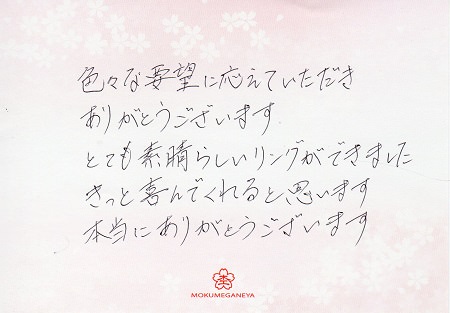 色々な要望に応えていただき
ありがとうございます
とても素晴らしいリングができました
きっと喜んでくれると思います
本当にありがとうございます
MOKUMEGANEYA